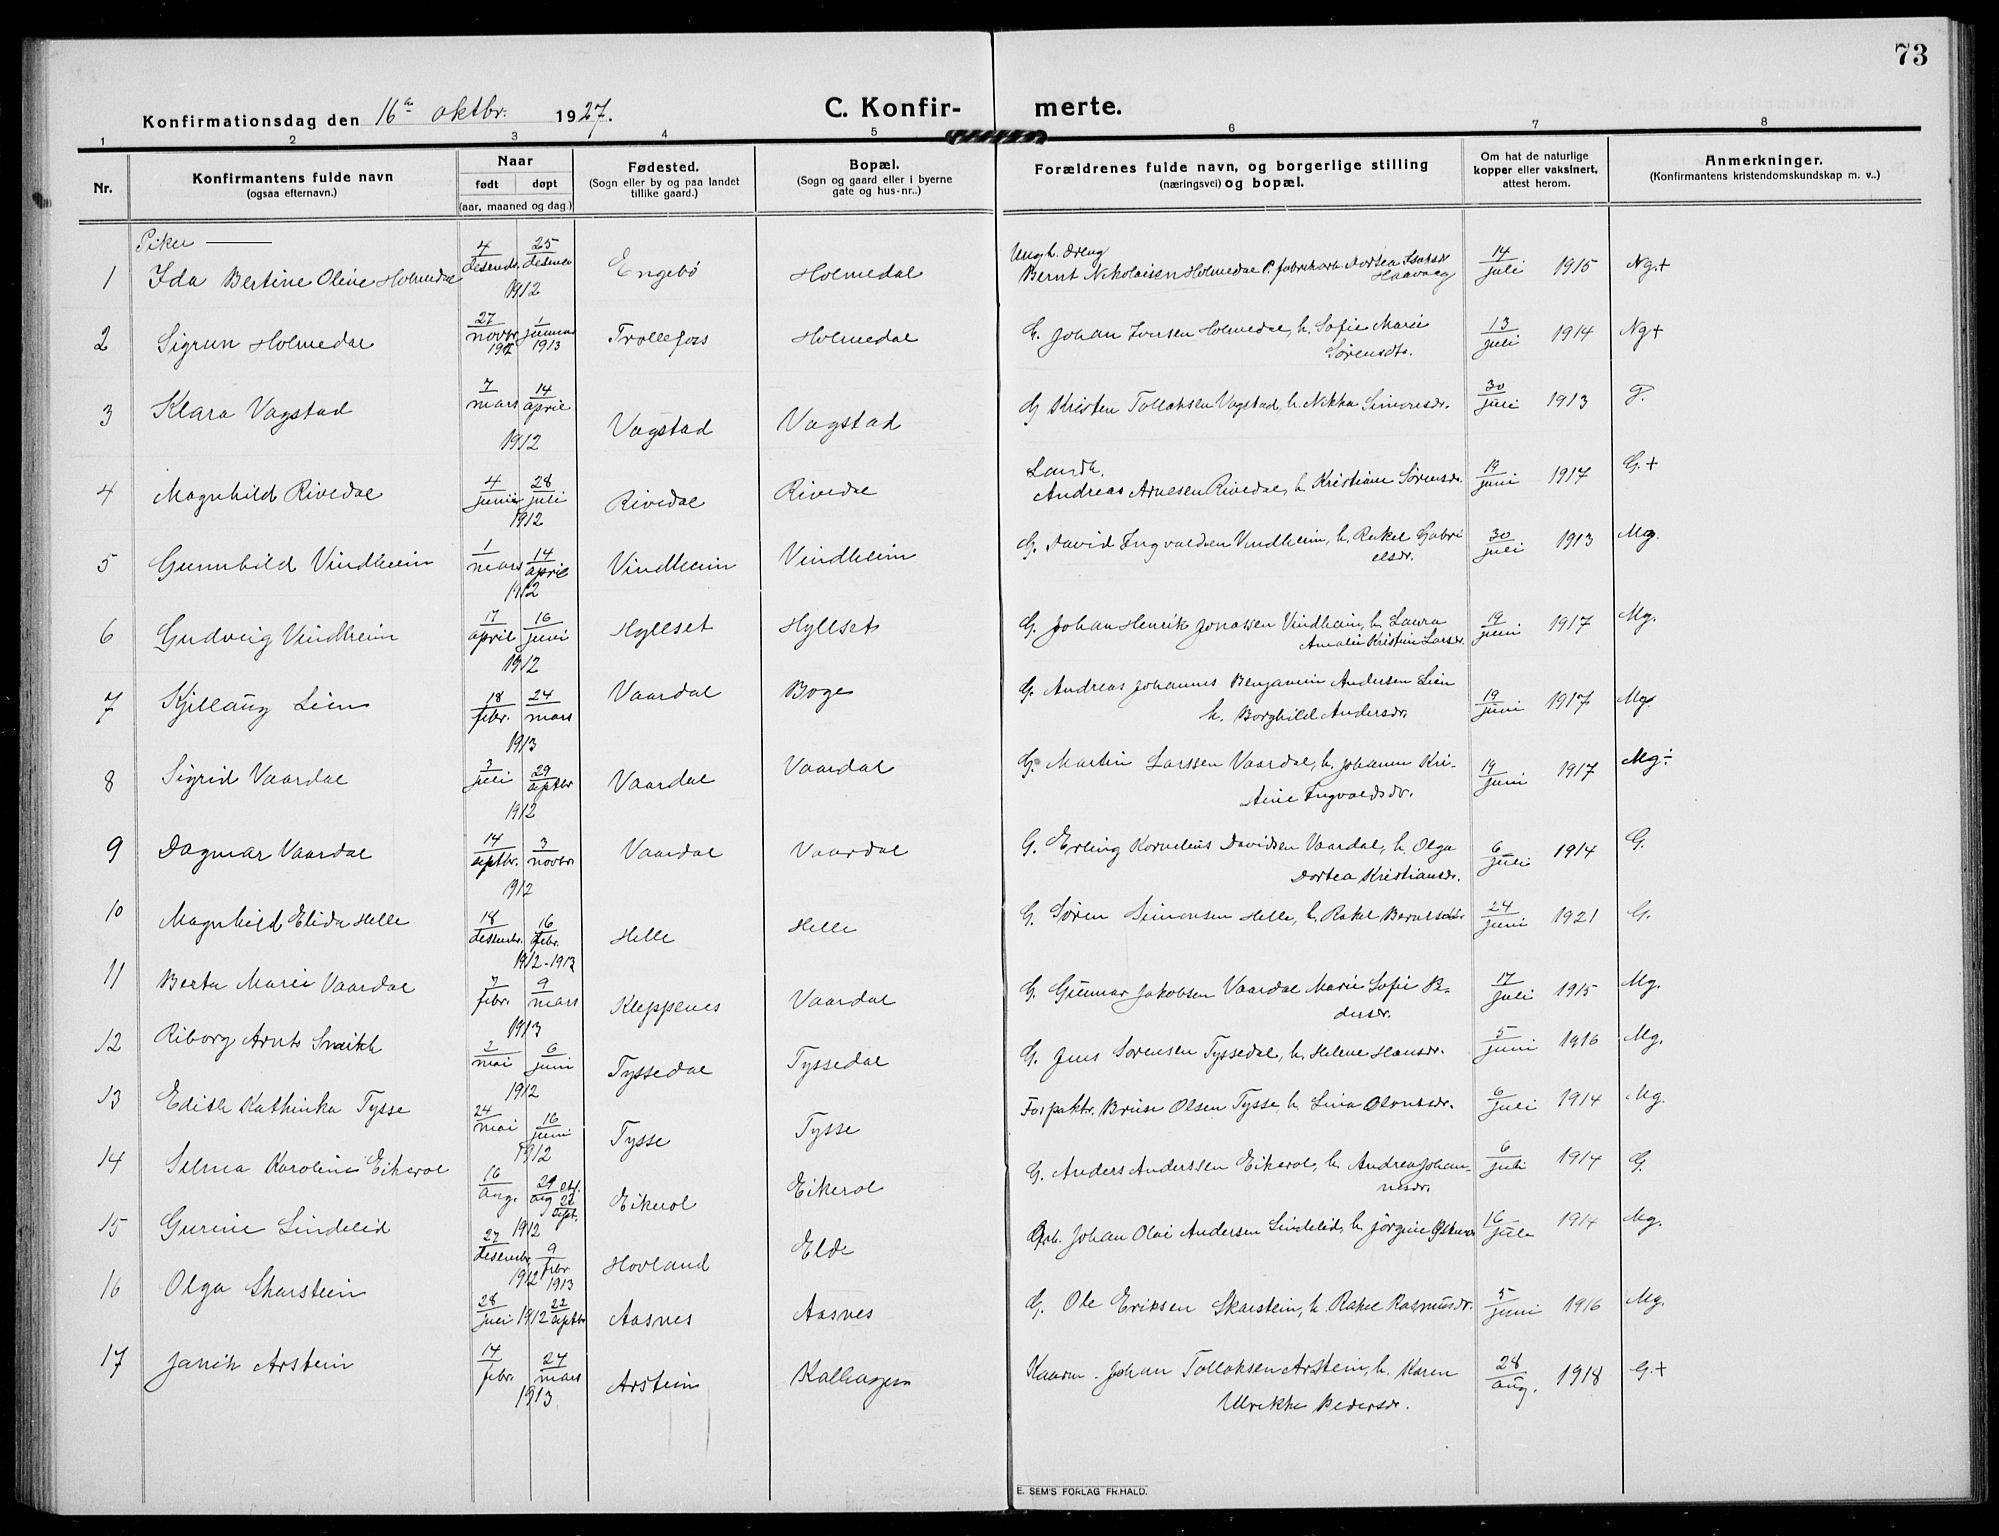 73
Konfirmationsdag den 16de oktbr. 1927.
C. Konfirmerte.
1 2 3 4 5 6 7 8
Nr.
Konfirmantens fulde navn
(ogsaa efternavn.)
Naar
født døpt
(aar, maaned og dag.)
Fødested.
(Sogn eller by og paa landet
tillike gaard.)
Bopæl.
(Sogn og gaard eller i byerne
gate og hus-nr..)
Forældrenes fulde navn, og borgerlige stilling
(næringsvei) og bopæl.
Om hat de naturlige
kopper eller vaksinert,
attest herom.
Anmerkninger.
(Konfirmantens kristendomskundskap m. v..)
Piker
1 Ida Bertine Oline Holmedal 4/desembr 25/desembr 1912 Engebö Holmedal Ungk. dreng Bernt Nikolaisen Holmedal P. fabrikarb. Dortea Isaksdr Haavaag 14/juli 1915 Ng+
2 Sigrun Holmedal 27/novbr 1912 1/januar 1913 Trollefoss Holmedal G. Johan Iversen Holmedal, h. Sofie Marie Sørensdtr. 13/juli 1914 Ng+
3 Klara Vagstad 7/mars 14/april 1912 Vagstad Vagstad G. Kristen Tollaksen Vagstad, h. Nikka Simonsdr. 30/juli 1913 T.
4 Magnhild Rivedal 4/juni 28/juli 1912 Rivedal Rivedal Landh. Andreas Arnesen Rivedal, h. Kristiane Sørensdr. 19/juni 1917 G.+
5 Gunnhild Vindheim 1/mars 14/april 1912 Vindheim Vindheim G. David Ingvaldsen Vindheim, h. Rakel Gabrielsdr. 30/juli 1913 Mg.
6 Gudveig Vindheim 17/april 16/juni 1912 Hyllset Hyllset G. Johan Henrik Jonassen Vindheim, h. Laura Amalie Kristine Larsdr. 19/juni 1917 Mg.
7 Kjellaug Lien 18/febr. 24/mars 1913 Vaardal Boge G. Andreas Johannes Benjamin Andersen Lien h. Borghild Andersdr. 19/juni 1917 Mg.
8 Sigrid Vaardal 3/juli 29/septbr 1912 Vaardal Vaardal G. Martin Larssen Vaardal, h. Johanne Kristine Ingvaldsdr. 19/juni 1917 Mg÷
9 Dagmar Vaardal 14/septbr. 3/novbr. 1912 Vaardal Vaardal G. Erling Kornelius Davidsen Vaardal, h. Olga Dortea Kristiansdr. 6/juli 1914 G.
10 Magnhild Elida Helle 18/desembr. 16/febr. 1912-1913 Helle Helle G. Søren Simonsen Helle, h. Rakel Berntsdtr. 24/juni 1921 G.
11 Berta Marie Vaardal 7/febr. 9/mars 1913 Kleppenes Vaardal G. Gunnar Jakobsen Vaardal Marie Sofie Pedersdr. 17/juli 1915 Mg.
12 Riborg Arnts 2/mai 6/juni 1912 Tyssedal Tyssedal G. Jens Sørensen Tyssedal, h. Helene Hansdr. 5/juni 1916 Mg.
13 Edith Kathinka Tysse 24/mai 16/juni 1912 Tysse Tysse Forpaktr. Brüse Olsen Tysse, h. Lina 6/juli 1914 Mg.
14 Selma Karoline Eikerol 16/aug. 29/aug st. 22/sept. 1912 Eikerol Eikerol G. Anders Anderssen Eikerol, h. Andrea Johannesdr. 6/juli 1914 G.
15 Gurine Lindelid 27/desembr. 1912 9/febr 1913 Hovland Elde Johan Olai Andersen Lindelid, h. Jørgine 16/juli 1914 Mg.
16 Olga Skarstein 28/juli 1912 22/septbr Aasnes Aasnes G. Ole Eriksen Skarstein, h. Rakel Rasmusdr. 5/juni 1916 Mg.
17 Janik Arstein 14/febr. 24/mars 1913 Arstein Kalhagen Kaarm. Johan Tollaksen Arstein, h. Karen Ulrikke Pedersdr. 28/aug. 1918 G.+
E. SEM'S FORLAG FR.HALD.